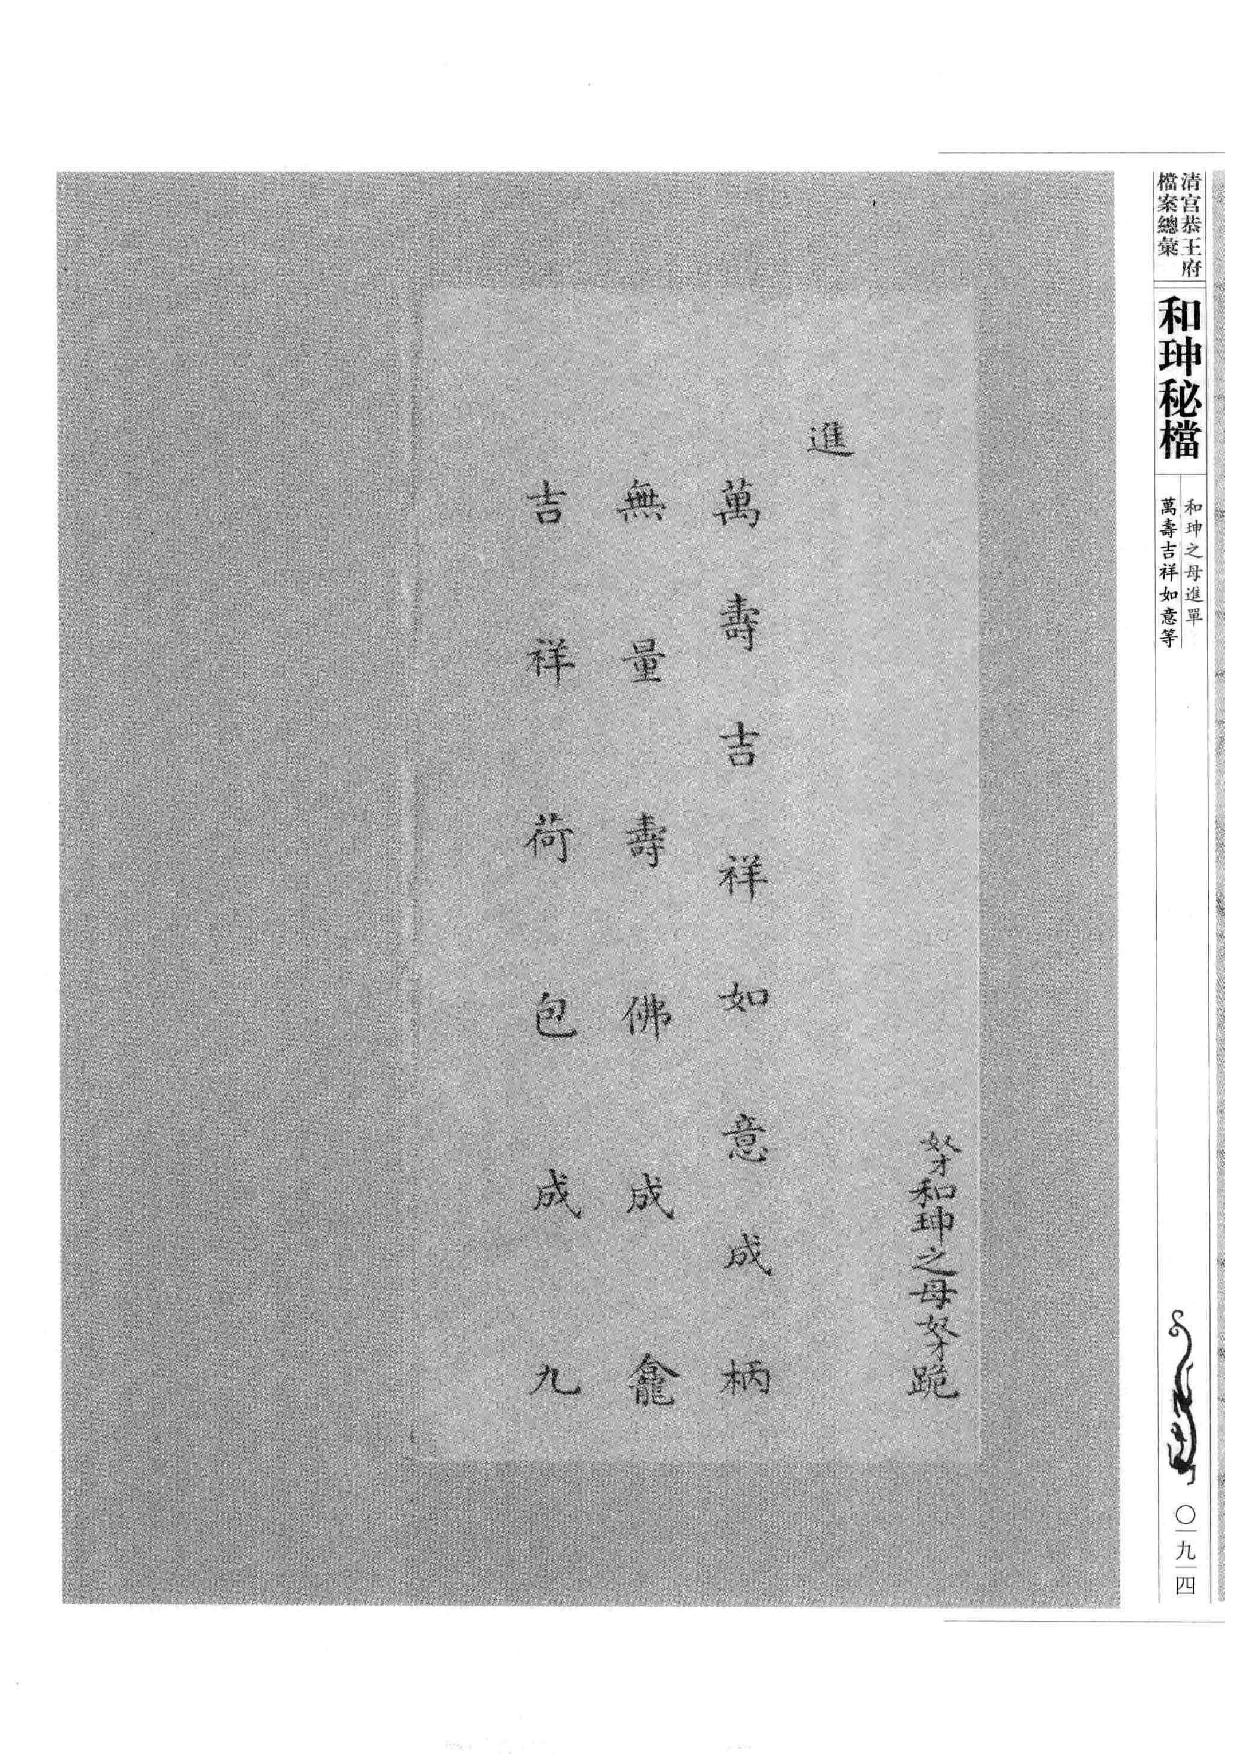 清宮恭王府
檔案總彙
和珅秘檔
和珅之母進單
萬壽吉祥如意等
〇一九四
奴才和珅之母奴才跪
進
萬壽吉祥如意成柄
無量壽佛成龕
吉祥荷包成九